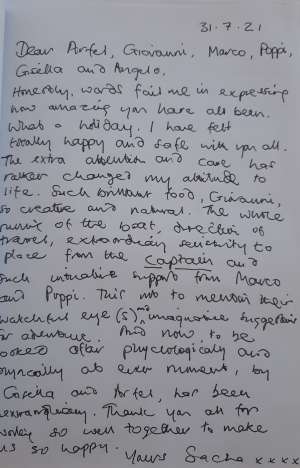 31.7.21
Dear Airfel, Giovanni, Marco, Poppi,
Gisella and Angelo,
Honestly, words fail me in expressing
how amazing you have all been.
What a holiday. I have felt
totally happy and safe with you all.
The extra attention and care has
rather changed my attitude to
life. Such brilliant food, Giovanni,
so creative and natural. The whole
running of the boat, direction of
travel, extraordinary sensitivity to
place from the Captain and
such intuitive support from Marco
and Poppi. This not to mention their
watchful eye(s) and imaginative suggestions
for adventure. And now, to be
looked after phycologically and
physically at ever moment, by
Gisella and Airfel, has been
extraordinary. Thank you all for
working so well together to make
us so happy.
Yours Sacha xxxx